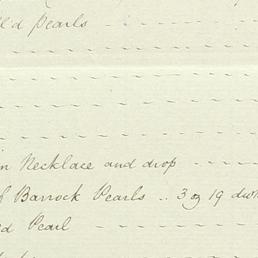 ll'd pearls
in Necklace and drop
f Barrock Pearls .. 3 oz 19 dwt
ed Pearl